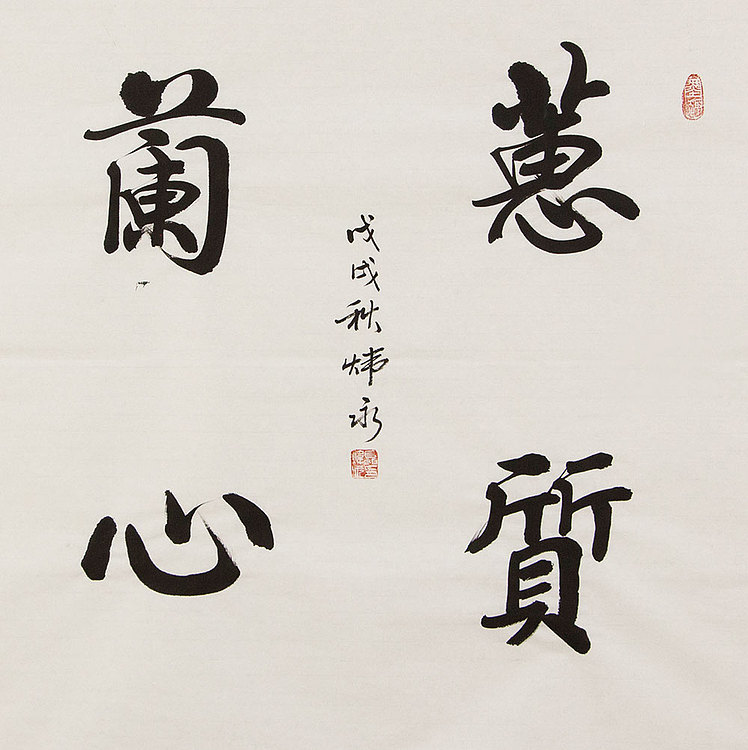 蕙質
蘭心
戊戌秋炜永